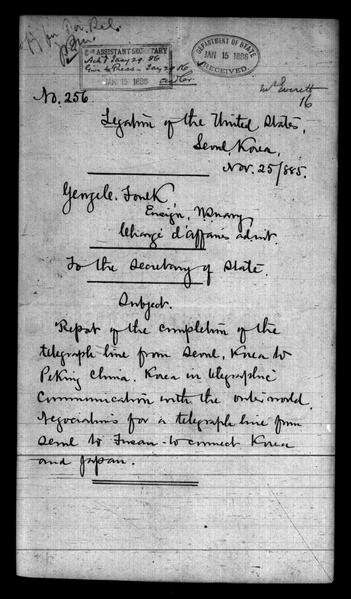 For. Rel.
2ND ASSISTANT SECRETARY
JAN 15 1886
DEPARTMENT OF STATE
JAN 15 1886
RECEIVED.
Mr Everett
16
No. 256
Legation of the United States,
Seoul, Korea,
Nov. 25/1885.
George C. Foulk,
Ensign, U.S. Navy,
Chargé d'affaires ad int.
To the Secretary of State.
Subject.
Report of the completion of the
telegraph line from Seoul, Korea to
Peking China. Korea in telegraphic
communication with the outer world.
Negotiations for a telegraph line from
Seoul to Fusan - to connect Korea
and Japan.